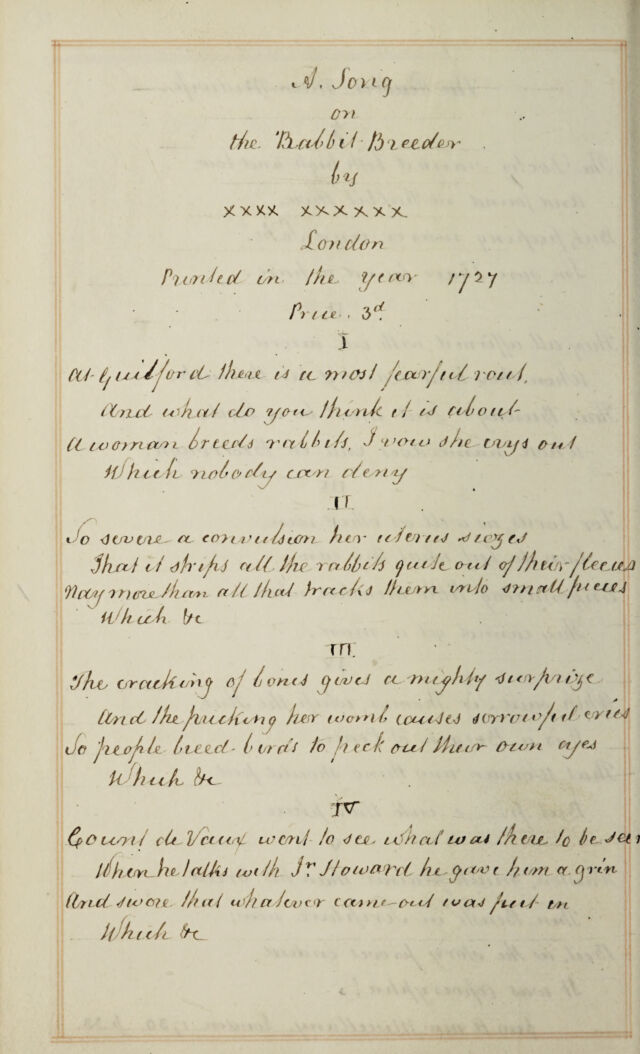 A. Song
on
the Rabbit Breeder
by
xxxx xxxxxx
London
Printed in the year 1727
Price. 3d.
I
At Guilford there is a most fearful rout,
And what do you think it is about
A woman breeds rabbits, I vow she crys out
Which nobody can deny
II
So severe a convulsion her uterus siezes
That it strips all the rabbits quite out of their fleeces
Nay more than all that tracks them into small pieces
Which &c
III
The cracking of bones gives a mighty surprize
And the pricking her womb causes sorrowful cries
So people breed birds to peck out their own eyes
Which &c
IV
Count de Vaux went to see what was there to be seen
When he talks with Jr. Howard he gave him a grin
And swore that whatever came out was put in
Which &c